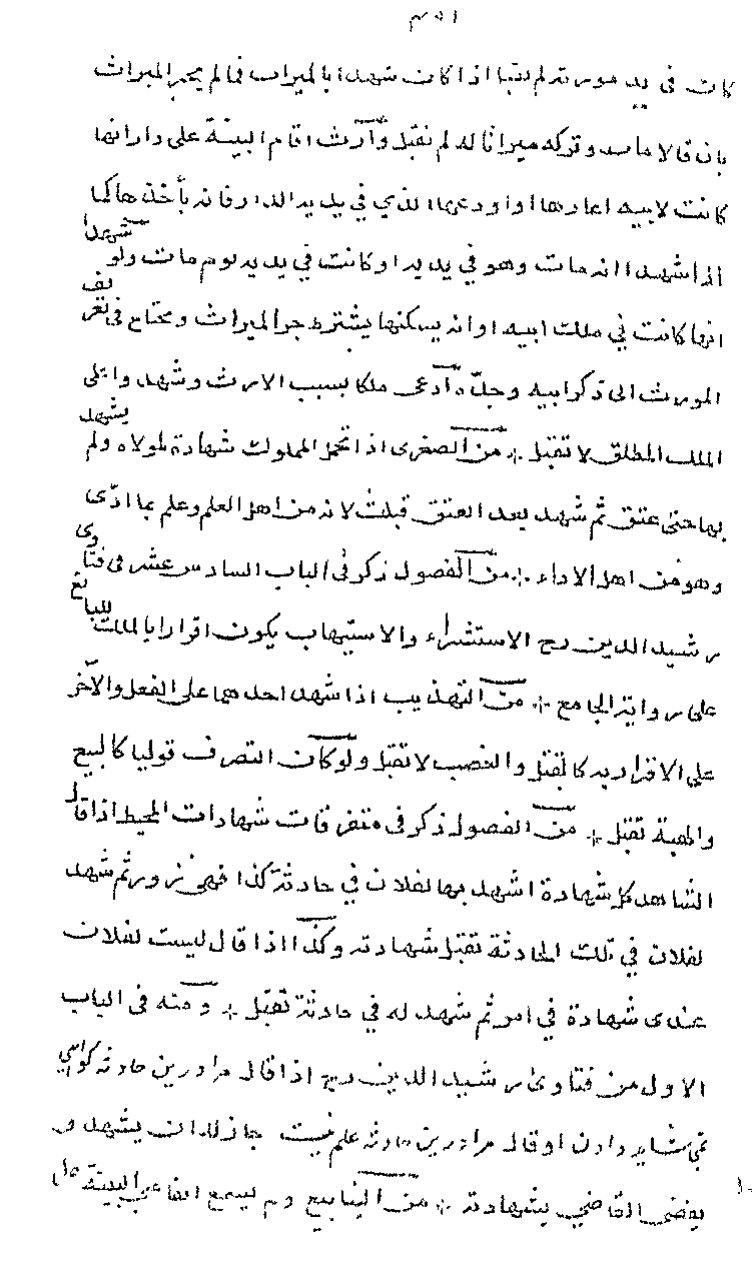 كانت في يد مورثه لم تقبل اذا كان شهدا بالميراث فما لم يجر الميراث
بان قالا مات وتركه ميراثا له لم تقبل وآرث اقام البينة على دار انها
كانت لابيه اعارها او اودعها الذي في يديه الدار فانه يأخذها كما
اذا شهدا انه مات وهو في يديه او كانت في يديه يوم مات ولو شهدا
انها كانت في ملك ابيه او انه يسكنها يشترط جر الميراث ومحتاج في تعريف
المورث الى ذكر ابيه وجده ادعى ملكا بسبب الارث وشهد وا على
الملك المطلق لا تقبل من الصغرى اذا تحمل المملوك شهادة لمولاه ولم يشهد
بها حتى عتق ثم شهد بعد العتق قبلت لانه من اهل العلم وعلم بما ادى
وهو من اهل الاداء من الفصول ذكر في الباب السادس عشر في فتاوى
رشيد الدين رح الاستشراء والاستيهاب يكون اقرارا بالملك للبائع
على رواية الجامع من التهذيب اذا شهد احدهما على الفعل والآخر
على الاقرار به كالقتل والغصب لا تقبل ولو كان التصرف قوليا كالبيع
والهبة تقبل من الفصول ذكر في متفرقات شهادات المحيط اذا قال
الشاهد كل شهادة اشهد بها لفلان في حادثة كذا فهي زور ثم شهد
لفلان في تلك الحادثة تقبل شهادته وكذا اذا قال ليست لفلان
عندى شهادة في امر ثم شهد له في حادثة تقبل ومنه في الباب
الاول من فتاوى رشيد الدين رح اذا قال مرا درين حادثه كواهي
نمى شايد دادن او قال مرا درين حادثه علم نيست جاز له ان يشهد و
يقضى القاضي بشهادته من الينابيع ولم يسمع القاضي البينة على